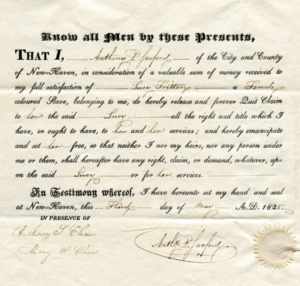 Know all Men by these Presents,
THAT I, Anthony P. Sanford of the City and County
of New-Haven, in consideration of a valuable sum of money received to
my full satisfaction of Lucy Tritton a Female
coloured Slave, belonging to me, do hereby release and forever Quit Claim
to her the said Lucy all the right and title which I
have, or ought to have, to her and her services; and hereby emancipate
and set her free, so that neither I nor my heirs, nor any person under
me or them, shall hereafter have any right, claim, or demand, whatever, up-
on the said Lucy or for her services.
In Testimony whereof, I have hereunto set my hand and seal
at New-Haven, this Third day of May A.D. 1825.
IN PRESENCE OF
Anthony S.
Mary W.
Anth. P. Sanford